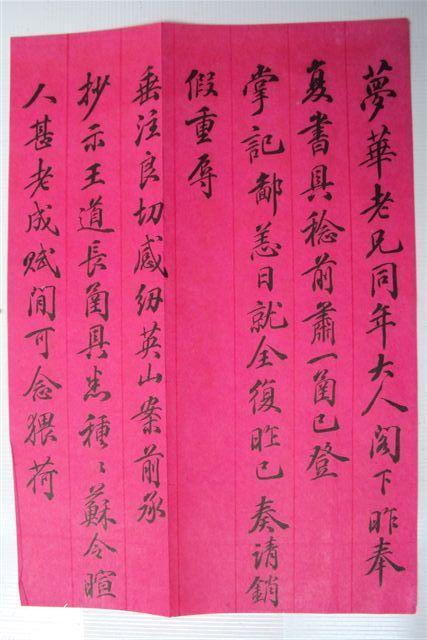 夢華老兄同年大人閣下昨奉
复書具稔前肅一圅已登
掌記鄙恙日就全復昨已奏请銷
假重辱
垂注良切感纫英山案前承
抄示王道長圅具悉種〻蘇令暄
人甚老成赋閒可念猥荷